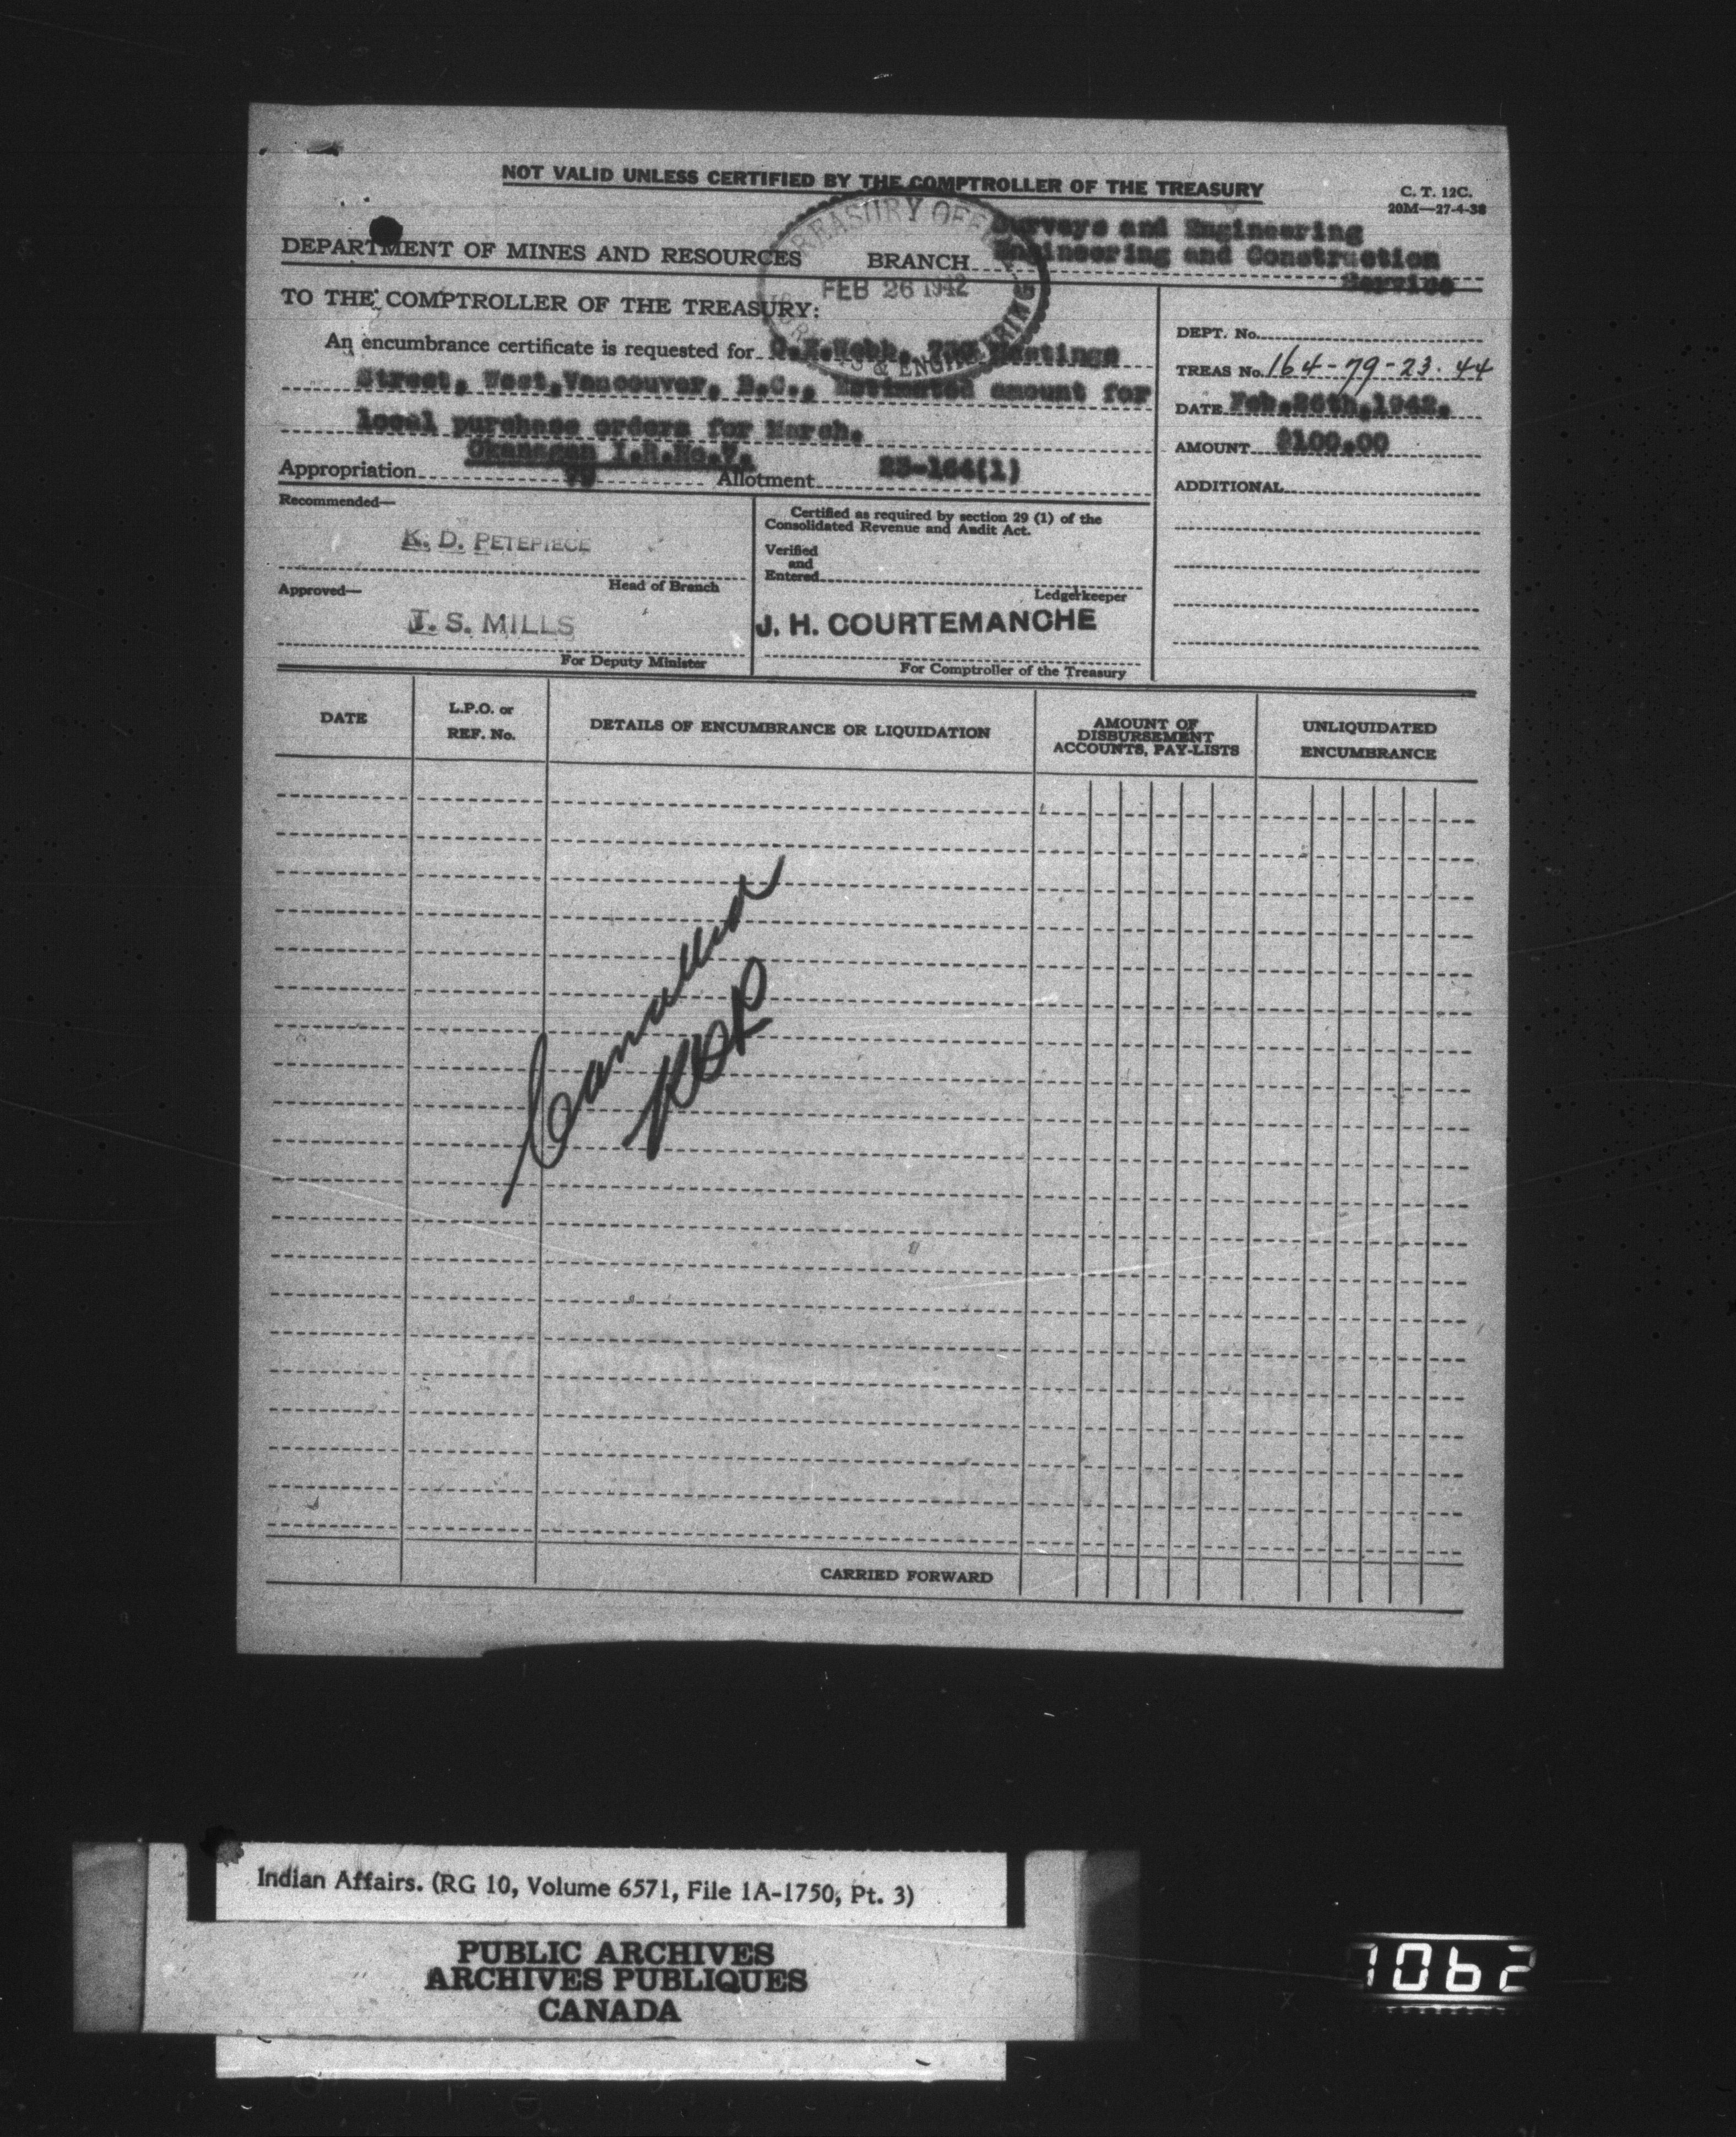 NOT VALID UNLESS CERTIFIED BY THE COMPTROLLER OF THE TREASURY
C. T. 12C.
20M—27-4-38
Surveys and Engineering
DEPARTMENT OF MINES AND RESOURCES BRANCH Engineering and Construction
Service
TREASURY OFFICE
FEB 26 1942
SURVEYS & ENGINEERING
TO THE COMPTROLLER OF THE TREASURY:
An encumbrance certificate is requested for Webb, Hastings
Street, West, Vancouver, B.C., Estimated amount for
local purchase orders for March.
Okanagan I.R.No.
Appropriation 79 Allotment 23-164(1)
DEPT. No.
TREAS No. 164-79-23.44
DATE Feb.26th,1942.
AMOUNT $100.00
ADDITIONAL
Recommended—
K. D. PETEPIECE
Head of Branch
Approved—
J. S. MILLS
For Deputy Minister
Certified as required by section 29 (1) of the
Consolidated Revenue and Audit Act.
Verified
and
Entered
Ledgerkeeper
J. H. COURTEMANCHE
For Comptroller of the Treasury
DATE
L.P.O. or
REF. No.
DETAILS OF ENCUMBRANCE OR LIQUIDATION
AMOUNT OF
DISBURSEMENT
ACCOUNTS, PAY-LISTS
UNLIQUIDATED
ENCUMBRANCE
KDP
CARRIED FORWARD
Indian Affairs. (RG 10, Volume 6571, File 1A-1750, Pt. 3)
PUBLIC ARCHIVES
ARCHIVES PUBLIQUES
CANADA
1062